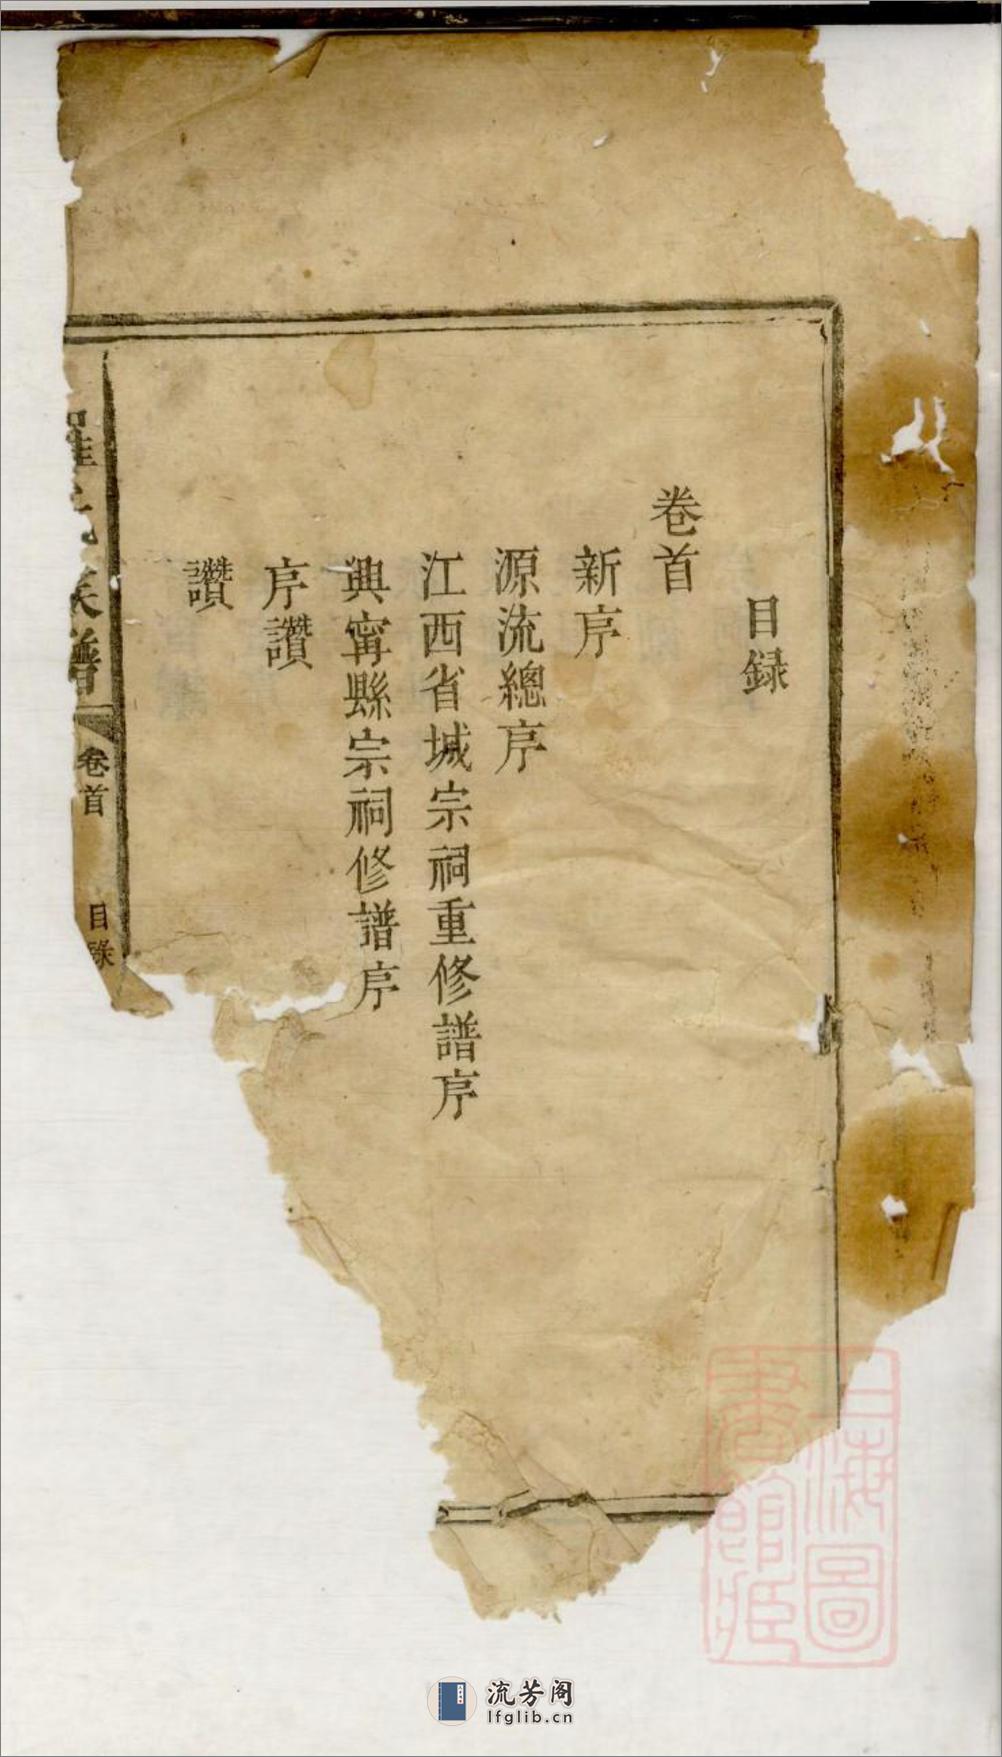 目録
卷首
新序
源流總序
江西省城宗祠重修譜序
興甯縣宗祠修譜序
序讚
讚
羅氏族譜
卷首
目錄
上海圖書館藏
流芳阁
lfglib.cn